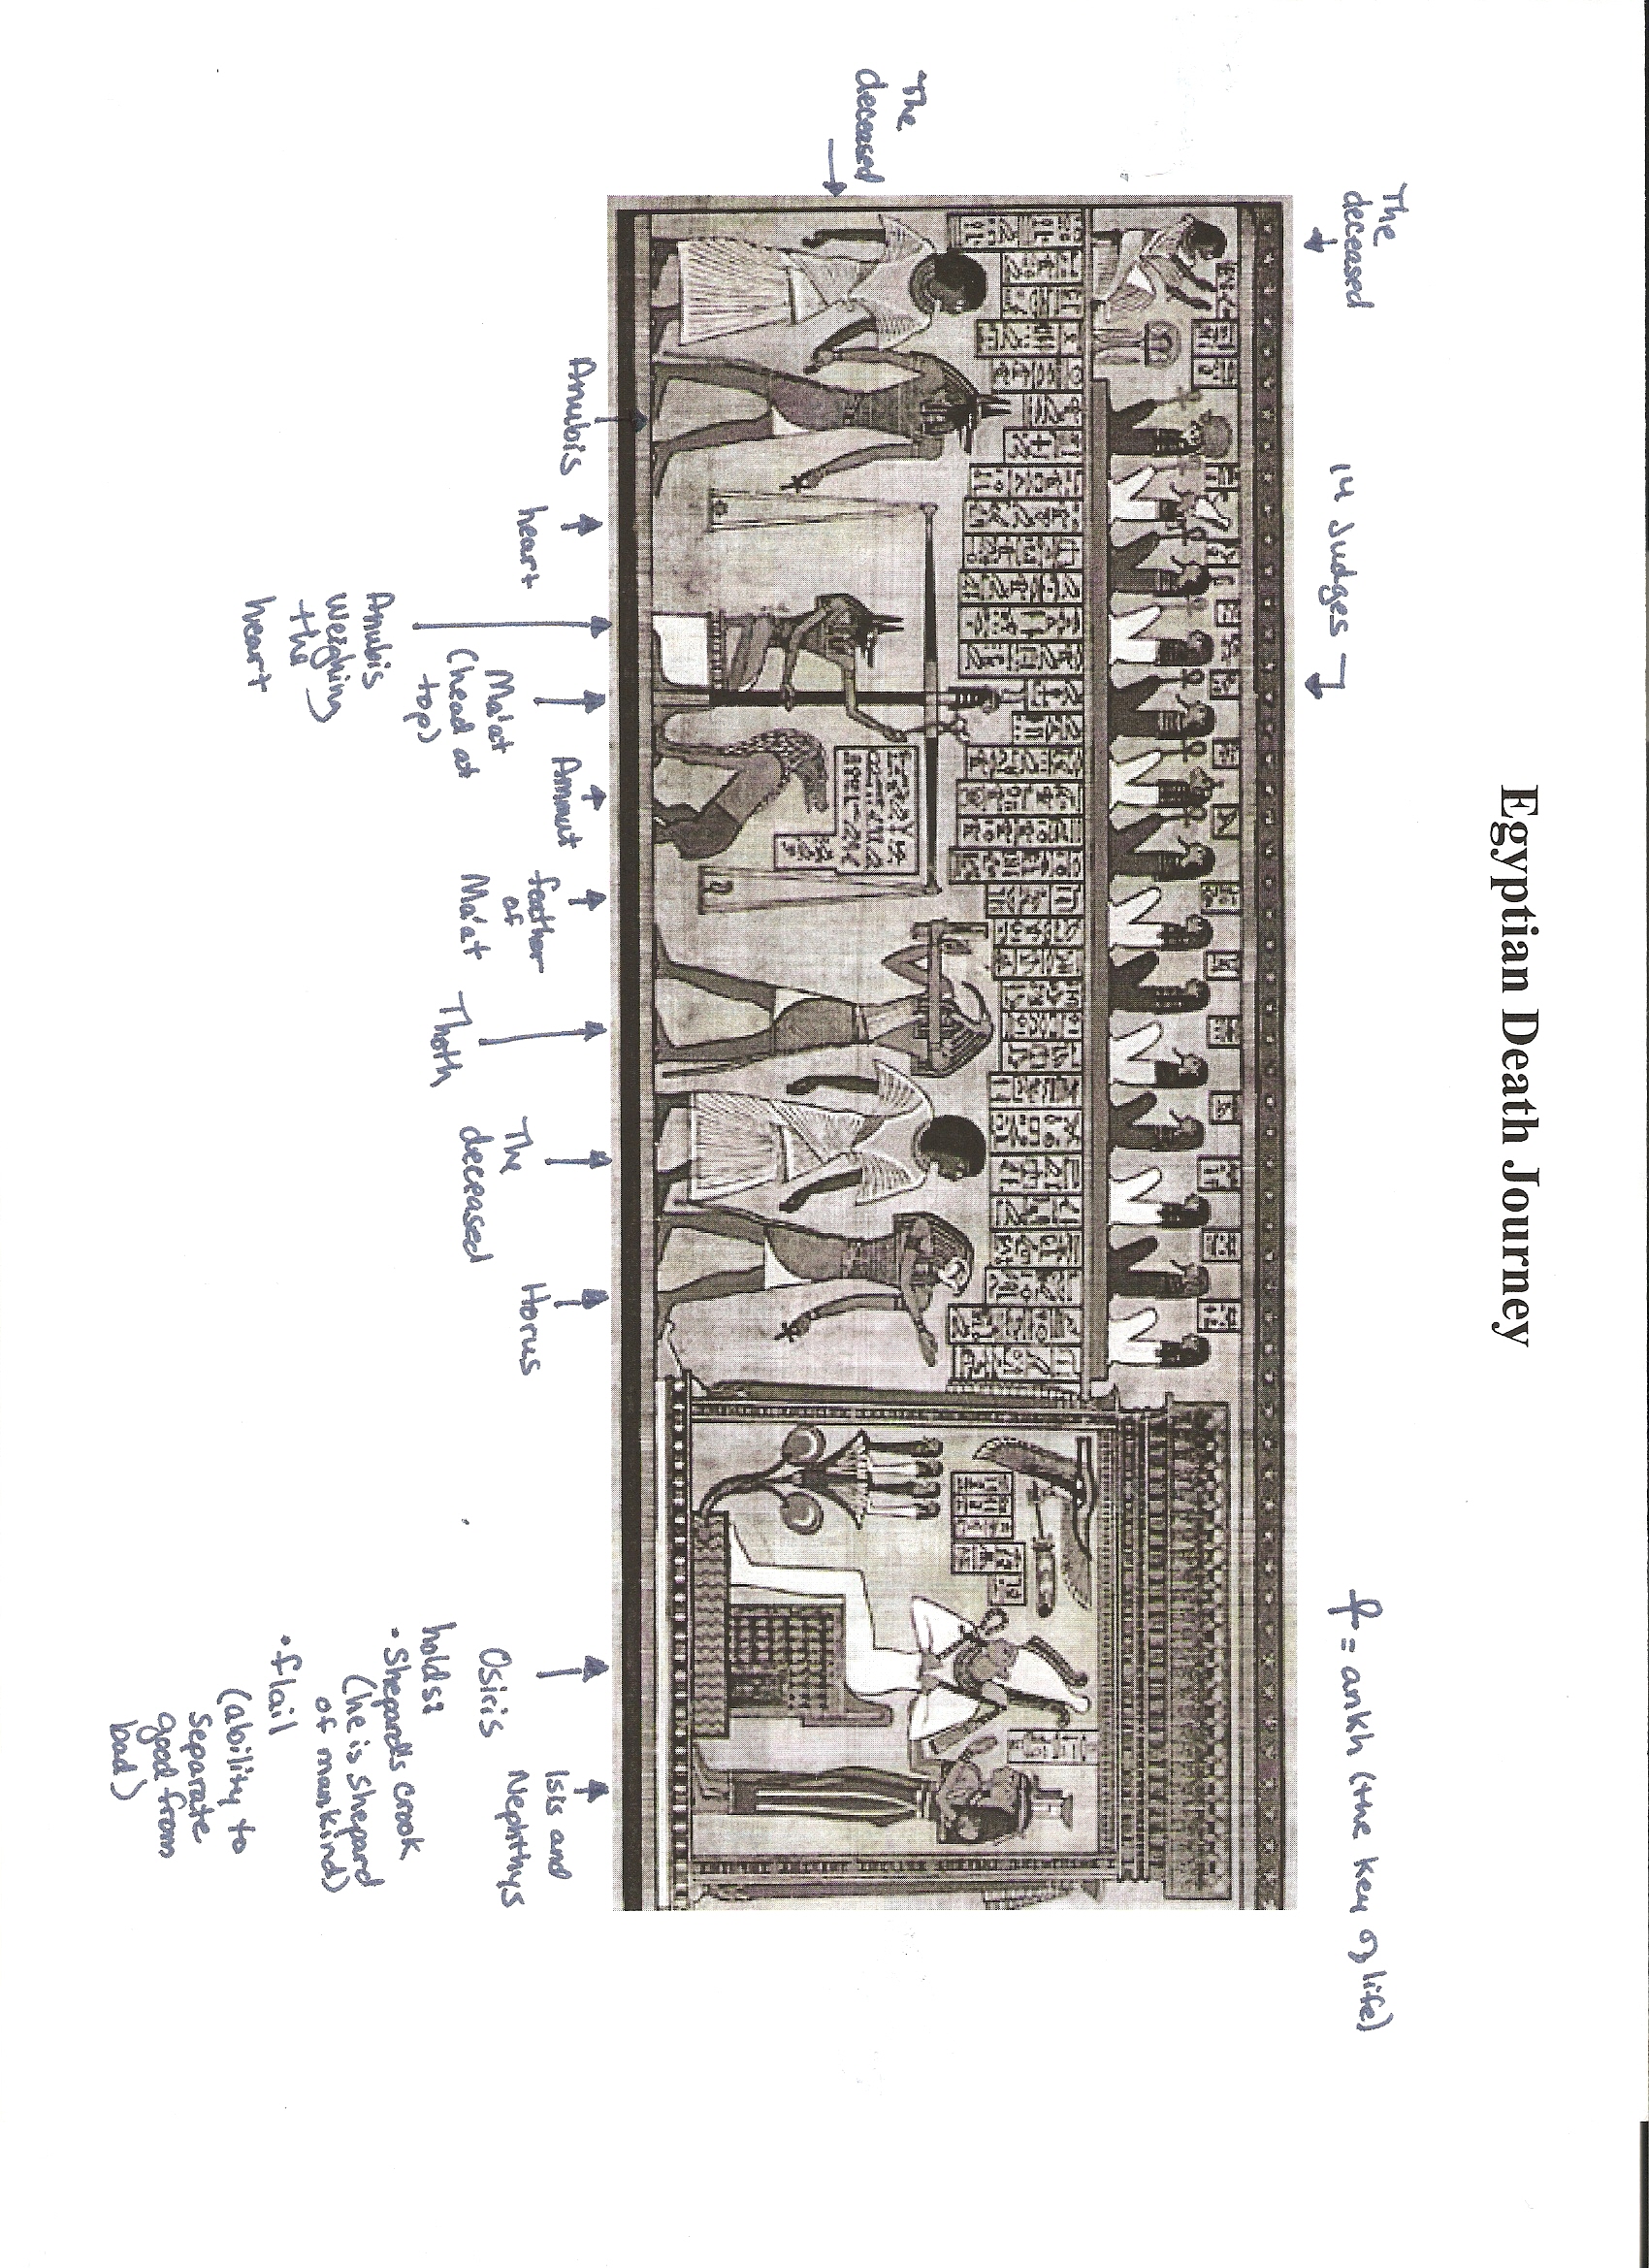 Egyptian Death Journey
The
deceased
14 Judges
= ankh (the key of life)
The
deceased
Anubis
heart
Anubis
weighing
the
heart
Ma'at
(head at
top)
Ammut
feather
of
Ma'at
Thoth
The
deceased
Horus
Osiris
holds:
- Shepard's crook
(he is Shepard
of mankind)
• flail
(ability to
separate
good from
bad)
Isis and
Nephthys